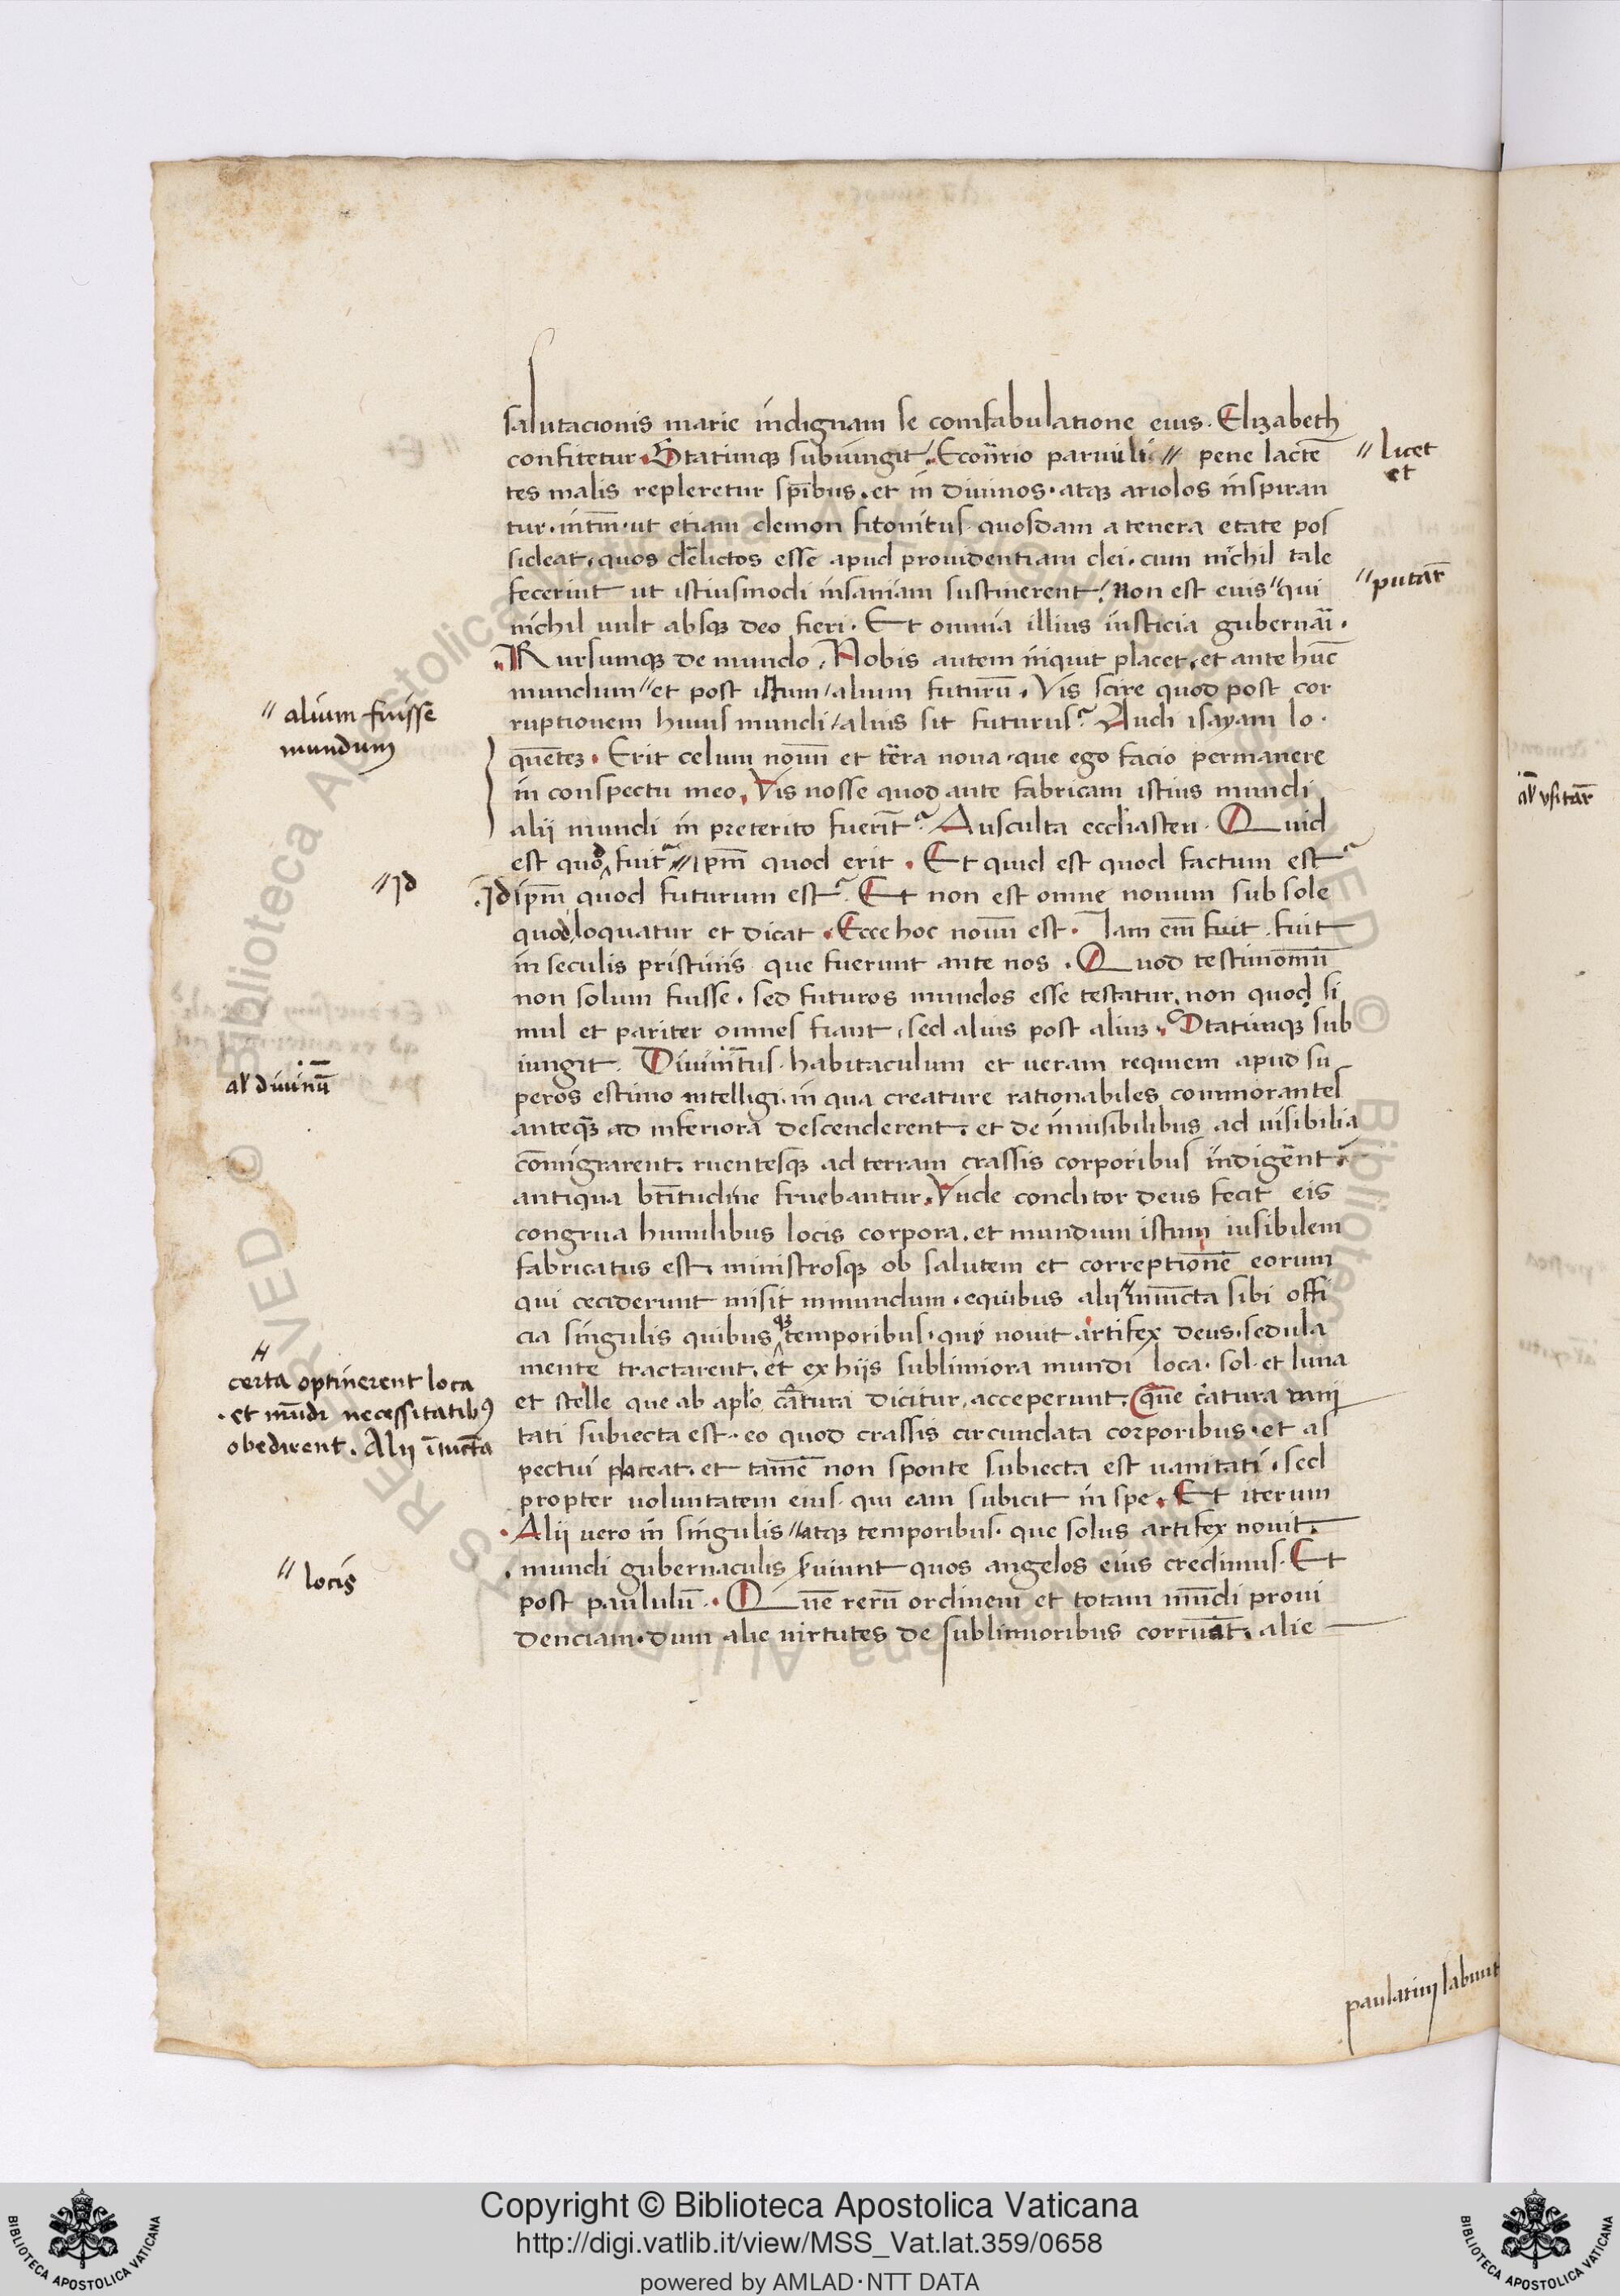 salutacionis marie indignam se comfabulatione eius. Elizabeth
confitetur. Statimqꝫ subiungit. Ecōn̄rio paruuli // pene lactē
tes malis repleretur sp̄ibus. et in diuinos. atqꝫ ariolos inspiran
tur. int̄m. ut etiam demon fitonitus quosdam a tenera etate pos
sideat. quos d̄elictos esse apud prouidentiam dei. cum nichil tale
feceriūt ut istiusmodi insaniam sustinerent? Non est eius // qui
nichil uult absqꝫ deo fieri. Et omnia illius iusticia gubernāī.
Rursumqꝫ de mundo. Nobis autem inquit placet. et ante hūc
mundum // et post istum / alium futurū. Vis scire quod post cor
ruptionem huius mundi / alius sit futurus? Audi isayam lo.
quētēꝫ. Erit celum nouū et t̄era noua. que ego facio permanere
in conspectu meo. Vis nosse quod ante fabricam istius mundi
alij mundi in preterito fuerīt? Ausculta eccl̄iasten. Quid
est quod fuit? // ip̄m quod erit. Et quid est quod factum est?
.Id ip̄m quod futurum est? Et non est omne nouum sub sole
quod loquatur et dicat. Ecce hoc nouū est. Iam em̄ fuit. fuit
in seculis pristinis que fuerunt ante nos. Quod testimoniū
non solum fuisse. sed futuros mundos esse testatur. non quod si
mul et pariter omnes fiant. sed alius post aliuꝫ. Statimqꝫ sub
iungit. Diuinitus habitaculum et ueram requiem apud su
peros estimo intelligi. in qua creature rationabiles commorantes
anteqꝫ ad inferiora descenderent. et de inuisibilibus ad uisibilia
cōmigrarent. ruentesqꝫ ad terram crassis corporibus indigēnt.
antiqua btītudine fruebantur. Vnde conditor deus fecit eis
congrua humilibus locis corpora. et mundum istum iusibilem
fabricatus est. ministrosqꝫ ob salutem et correptionē eorum
qui ceciderunt misit inmundum. equibus alij iniūcta sibi offi
cia singulis quibusqꝫ temporibus. que nouit artifex deus. sedula
mente tractarent. et ex hijs sublimiora mundi loca. sol. et luna
et stelle que ab apl̄o c̄atura dicitur, acceperunt. Que c̄atura vani
tati subiecta est. eo quod crassis circundata corporibus. et as
pectui pateat. et tamē non sponte subiecta est uanitati. sed
propter uoluntatem eius. qui eam subicit in spe. Et iterum
. Alij uero in singulis // atqꝫ temporibus. que solus artifex nouit.
. mundi gubernaculis s̄uiunt quos angelos eius credimus. Et
post paululū. Quē rerū ordinem et totam mūdi proui
denciam. dum alie uirtutes de sublimioribus corruāt. alie
// licet
et
// putār
// alium fuisse
mundum
// Id
al' diuinū
certa optinerent loca
. et mūdi necessitatibꝰ
obedirent. Alij īiūcta
// locis
paulatim labunt
al' vsitār
Copyright © Biblioteca Apostolica Vaticana
http://digi.vatlib.it/view/MSS_Vat.lat.359/0658
powered by AMLAD·NTT DATA
BIBLIOTECA APOSTOLICA VATICANA
BIBLIOTECA APOSTOLICA VATICANA